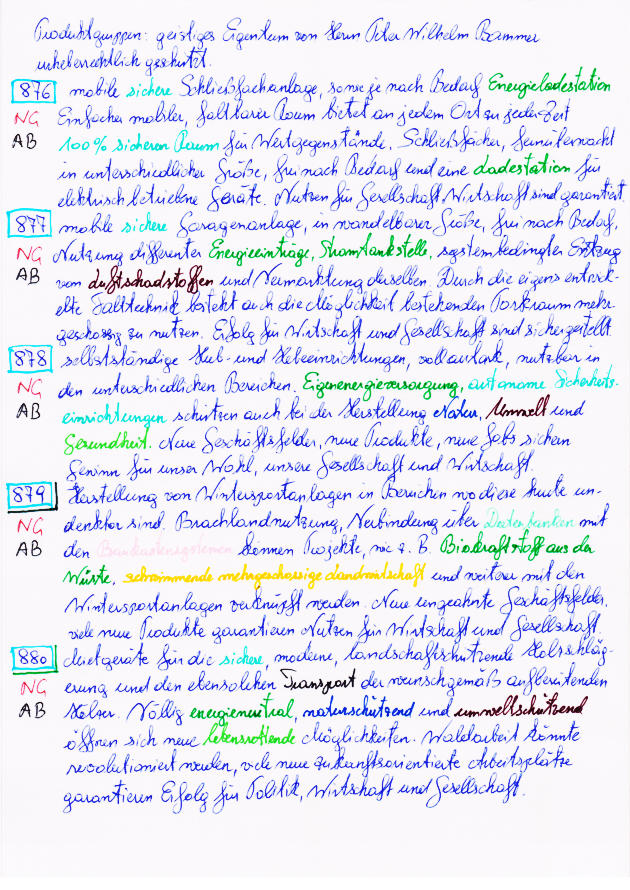 Produktgruppen: geistiges Eigentum von Herrn Peter Wilhelm Bammer
urheberrechtlich geschützt.
876 mobile sichere Schließfachanlage, sowie je nach Bedarf Energieladestation
NG Einfacher mobiler, faltbarer Raum bietet an jedem Ort zu jeder Zeit
AB 100% sicheren Raum für Wertgegenstände. Schließfächer, fernüberwacht
in unterschiedlicher Größe, frei nach Bedarf und eine Ladestation für
elektrisch betriebene Geräte. Nutzen für Gesellschaft Wirtschaft sind garantiert.
877 mobile sichere Garagenanlage, in wandelbarer Größe, frei nach Bedarf,
NG Nutzung differenter Energieeinträge, Stromtankstelle, systembedingter Entzug
AB von Luftschadstoffen und Vermarktung derselben. Durch die eigens entwick-
elte Falttechnik besteht auch die Möglichkeit bestehenden Parkraum mehr-
geschossig zu nutzen. Erfolg für Wirtschaft und Gesellschaft sind sichergestellt.
878 selbstständige Hub- und Hebeeinrichtungen, vollautark, nutzbar in
NG den unterschiedlichen Bereichen. Eigenenergieversorgung, autonome Sicherheits-
AB einrichtungen schützen auch bei der Herstellung Natur, Umwelt und
Gesundheit. Neue Geschäftsfelder, neue Produkte, neue Jobs sichern
Gewinn für unser Wohl, unsere Gesellschaft und Wirtschaft.
879 Herstellung von Wintersportanlagen in Bereichen wo diese heute un-
NG denkbar sind. Brachlandnutzung, Verbindung über Datenbanken mit
AB den Baukastensystemen können Projekte, wie z. B. Biokraftstoff aus der
Wüste, schwimmende mehrgeschossige Landwirtschaft und weitere mit den
Wintersportanlagen verknüpft werden. Neue ungeahnte Geschäftsfelder,
viele neue Produkte garantieren Nutzen für Wirtschaft und Gesellschaft.
880 Luftgeräte für die sichere, moderne, landschaftschützende Holzschläg-
NG erung und den ebensolchen Transport der wunschgemäß aufbereitenden
AB Hölzer. Völlig energieneutral, naturschützend und umweltschützend
öffnen sich neue lebensrettende Möglichkeiten. Waldarbeit könnte
revolutioniert werden, viele neue zukunftsorientierte Arbeitsplätze
garantieren Erfolg für Politik, Wirtschaft und Gesellschaft.